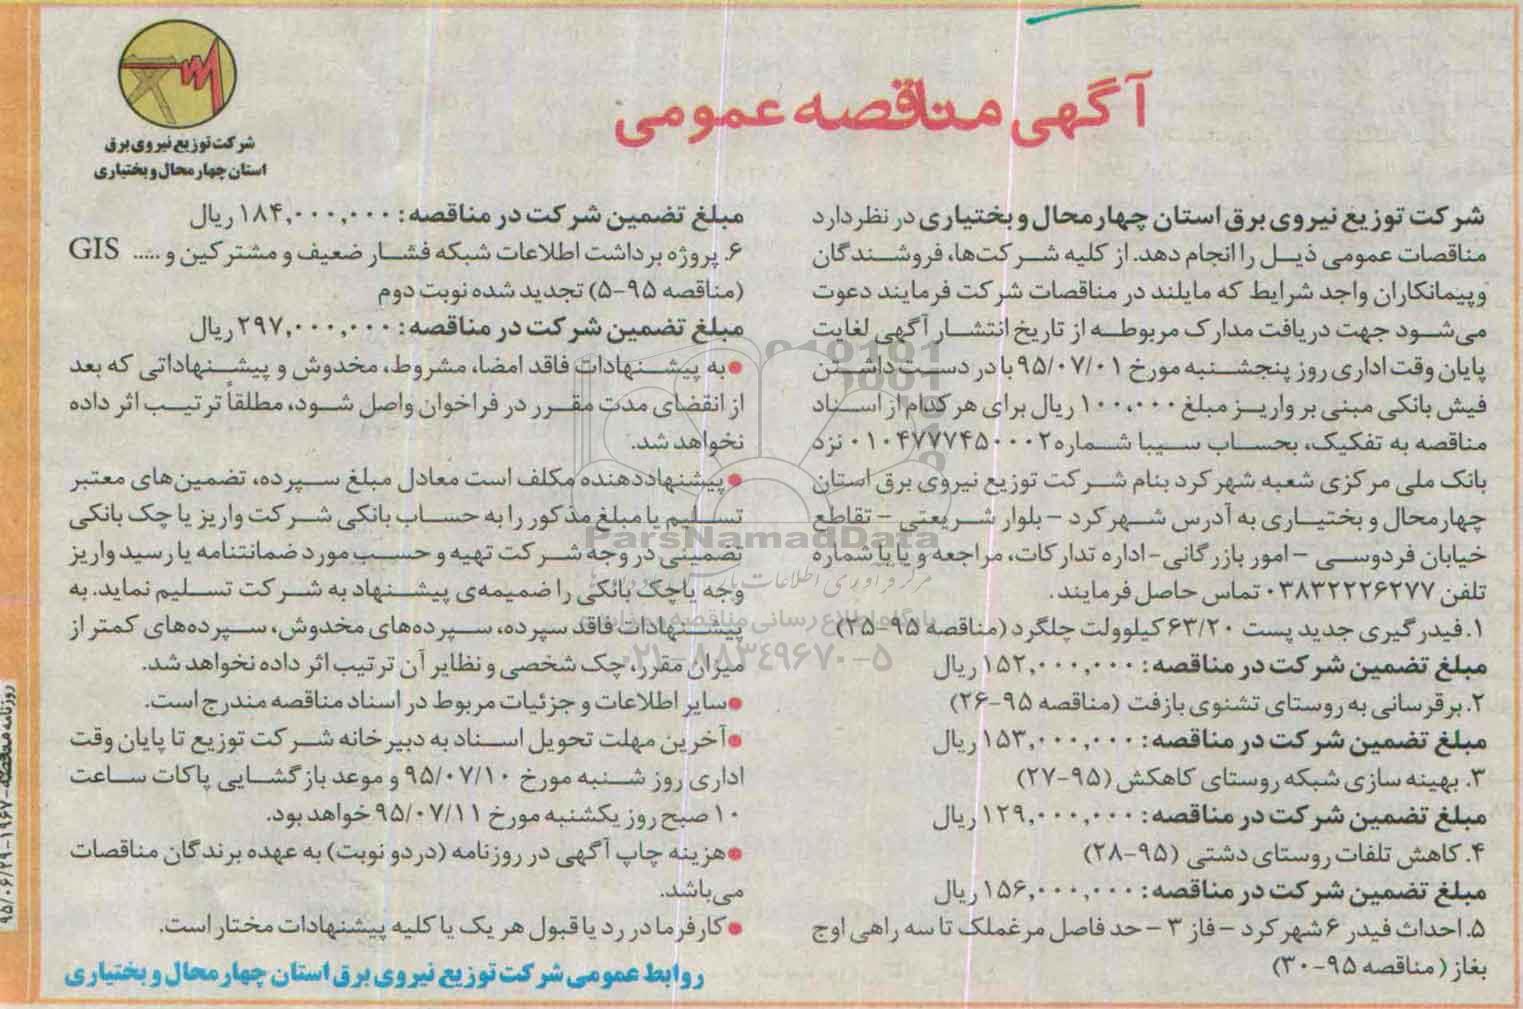 آگهی مناقصه عمومی
شرکت توزیع نیروی برق
استان چهارمحال و بختیاری
شرکت توزیع نیروی برق استان چهارمحال و بختیاری در نظر دارد
مناقصات عمومی ذیل را انجام دهد. از کلیه شرکت‌ها، فروشندگان
و پیمانکاران واجد شرایط که مایلند در مناقصات شرکت فرمایند دعوت
می‌شود جهت دریافت مدارک مربوطه از تاریخ انتشار آگهی لغایت
پایان وقت اداری روز پنجشنبه مورخ ۹۵/۰۷/۰۱ با در دست داشتن
فیش بانکی مبنی بر واریز مبلغ ۱۰۰،۰۰۰ ریال برای هر کدام از اسناد
مناقصه به تفکیک، بحساب سیبا شماره ۰۱۰۴۷۷۷۴۵۰۰۰۲ نزد
بانک ملی مرکزی شعبه شهرکرد بنام شرکت توزیع نیروی برق استان
چهارمحال و بختیاری به آدرس شهرکرد - بلوار شریعتی - تقاطع
خیابان فردوسی - امور بازرگانی - اداره تدارکات، مراجعه و یا با شماره
تلفن ۰۳۸۳۲۲۲۶۲۷۷ تماس حاصل فرمایند.
۱. فیدرگیری جدید پست ۶۳/۲۰ کیلوولت چلگرد (مناقصه ۹۵-۲۵)
مبلغ تضمین شرکت در مناقصه: ۱۵۲,۰۰۰,۰۰۰ ریال
۲. برقرسانی به روستای تشنوی بازفت (مناقصه ۹۵-۲۶)
مبلغ تضمین شرکت در مناقصه: ۱۵۳,۰۰۰,۰۰۰ ریال
۳. بهینه سازی شبکه روستای کاهکش (۹۵-۲۷)
مبلغ تضمین شرکت در مناقصه: ۱۲۹,۰۰۰,۰۰۰ ریال
۴. کاهش تلفات روستای دشتی (۹۵-۲۸)
مبلغ تضمین شرکت در مناقصه: ۱۵۶,۰۰۰,۰۰۰ ریال
۵. احداث فیدر ۶ شهرکرد - فاز ۳ - حد فاصل مرغملک تا سه راهی اوج
بغاز (مناقصه ۹۵-۳۰)
مبلغ تضمین شرکت در مناقصه: ۱۸۴,۰۰۰,۰۰۰ ریال
۶. پروژه برداشت اطلاعات شبکه فشار ضعیف و مشترکین و ..... GIS
(مناقصه ۹۵-۵) تجدید شده نوبت دوم
مبلغ تضمین شرکت در مناقصه: ۲۹۷,۰۰۰,۰۰۰ ریال
● به پیشنهادات فاقد امضا، مشروط، مخدوش و پیشنهاداتی که بعد
از انقضای مدت مقرر در فراخوان واصل شود، مطلقاً ترتیب اثر داده
نخواهد شد.
● پیشنهاددهنده مکلف است معادل مبلغ سپرده، تضمین‌های معتبر
تسلیم یا مبلغ مذکور را به حساب بانکی شرکت واریز یا چک بانکی
تضمینی در وجه شرکت تهیه و حسب مورد ضمانتنامه یا رسید واریز
وجه یا چک بانکی را ضمیمه‌ی پیشنهاد به شرکت تسلیم نماید. به
پیشنهادات فاقد سپرده، سپرده‌های مخدوش، سپرده‌های کمتر از
میزان مقرر، چک شخصی و نظایر آن ترتیب اثر داده نخواهد شد.
● سایر اطلاعات و جزئیات مربوط در اسناد مناقصه مندرج است.
● آخرین مهلت تحویل اسناد به دبیرخانه شرکت توزیع تا پایان وقت
اداری روز شنبه مورخ ۹۵/۰۷/۱۰ و موعد بازگشایی پاکات ساعت
۱۰ صبح روز یکشنبه مورخ ۹۵/۰۷/۱۱ خواهد بود.
● هزینه چاپ آگهی در روزنامه (در دو نوبت) به عهده برندگان مناقصات
می‌باشد.
● کارفرما در رد یا قبول هر یک یا کلیه پیشنهادات مختار است.
روابط عمومی شرکت توزیع نیروی برق استان چهارمحال و بختیاری
روزنامه مناقصه - ۱۹۶۷ - ۹۵/۰۶/۲۹
ParsNamadData
۰۲۱-۸۸۳۴۹۶۷۰-۵